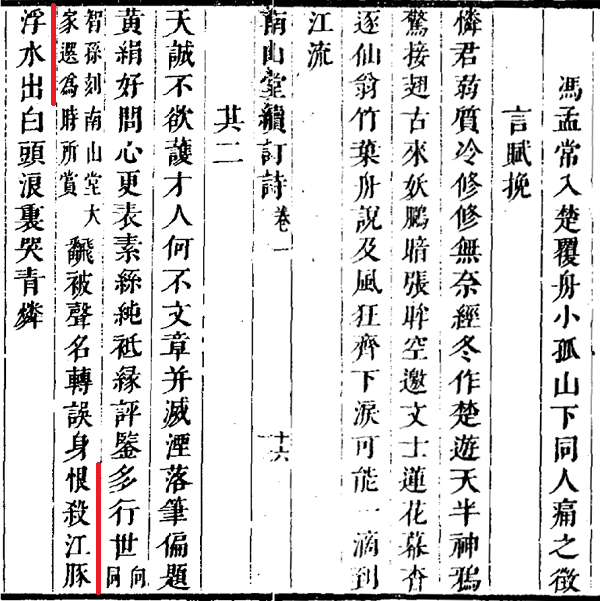 馮孟常入楚覆舟小孤山下同人痛之徵
言賦挽
憐君弱質冷修修無奈經冬作楚遊天半神鴉
驚接翅古來妖鵬暗張眸空邀文士蓮花幕杳
逐仙翁竹葉舟說及風狂齊下淚可能一滴到
江流
南山堂續訂詩 卷一 十六
其二
天誠不欲護才人何不文章并滅湮落筆偏題
黃絹好問心更表素絲純袛緣評鑒多行世向同
智孫刻南山堂大家選為時所賞飜被聲名轉誤身恨殺江豚
浮水出白頭浪裏哭青燐